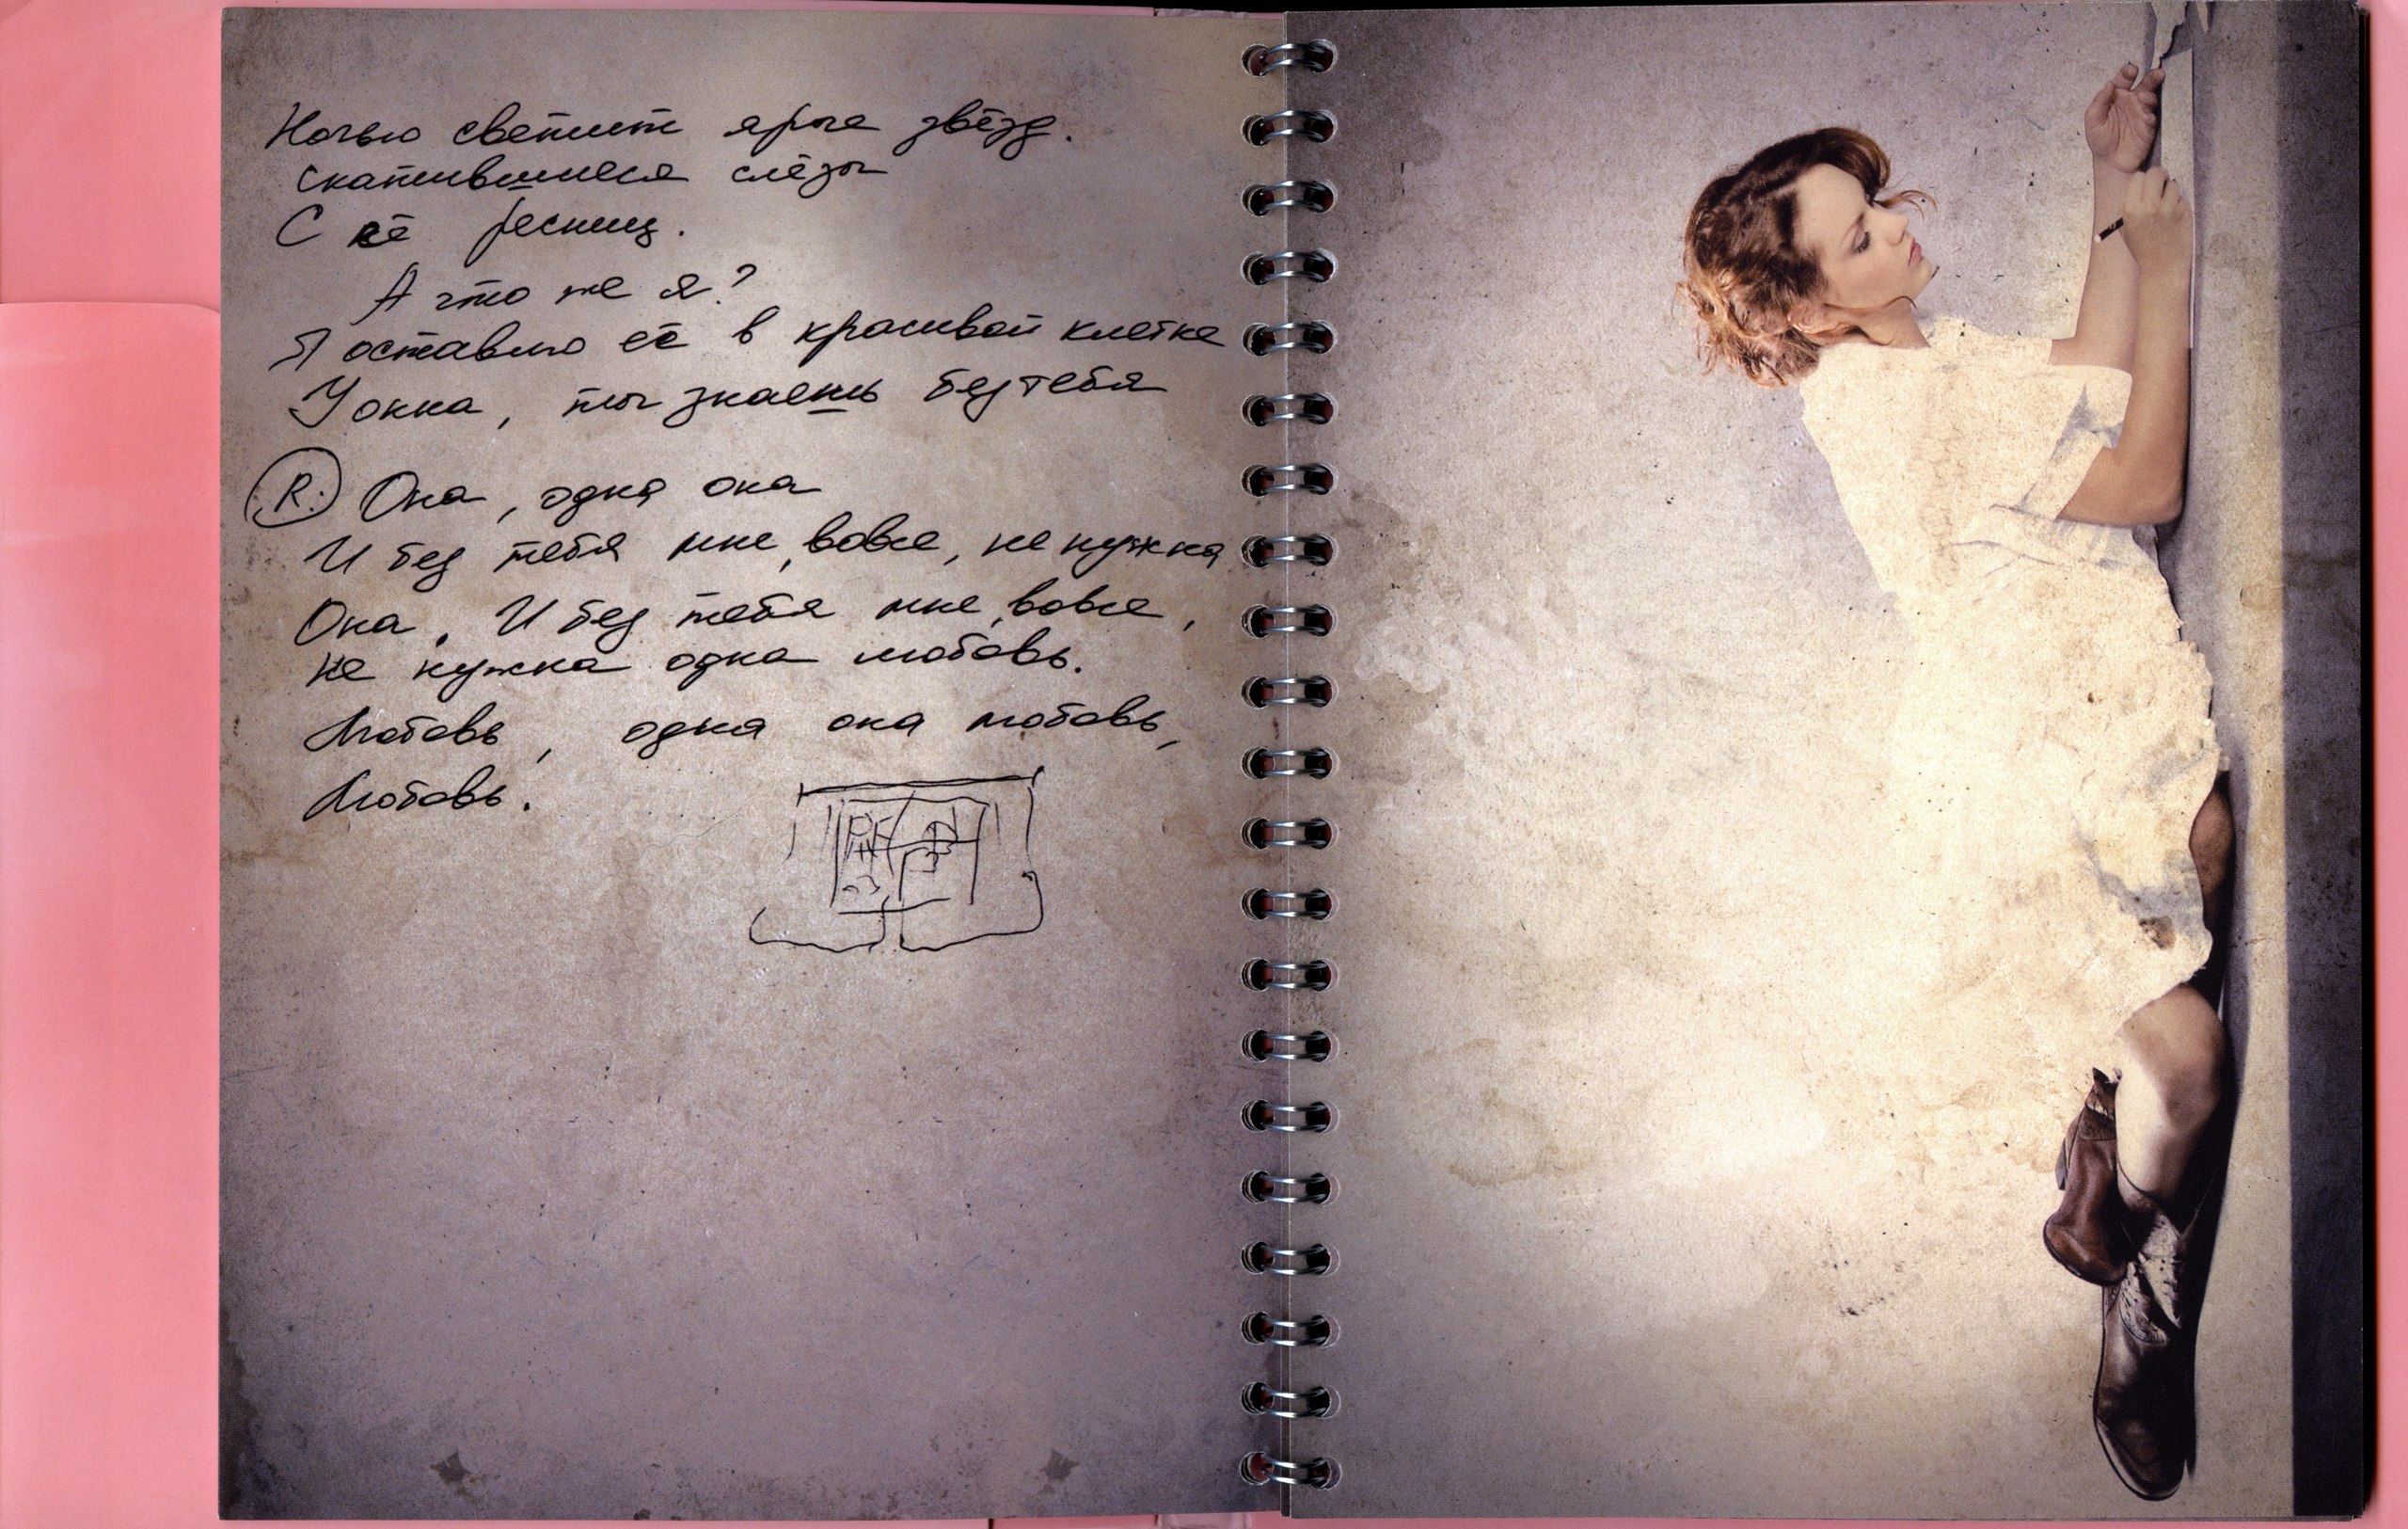 Ночью светит ярче звёзд.
скатившиеся слёзы
С её ресниц.
А что же я?
Я оставлю её в красивой клетке
У окна, ты знаешь без тебя
R: Она, одна она
И без тебя мне, вовсе, не нужна
Она. И без тебя мне, вовсе,
не нужна одна любовь.
Любовь, одна она любовь,
Любовь.